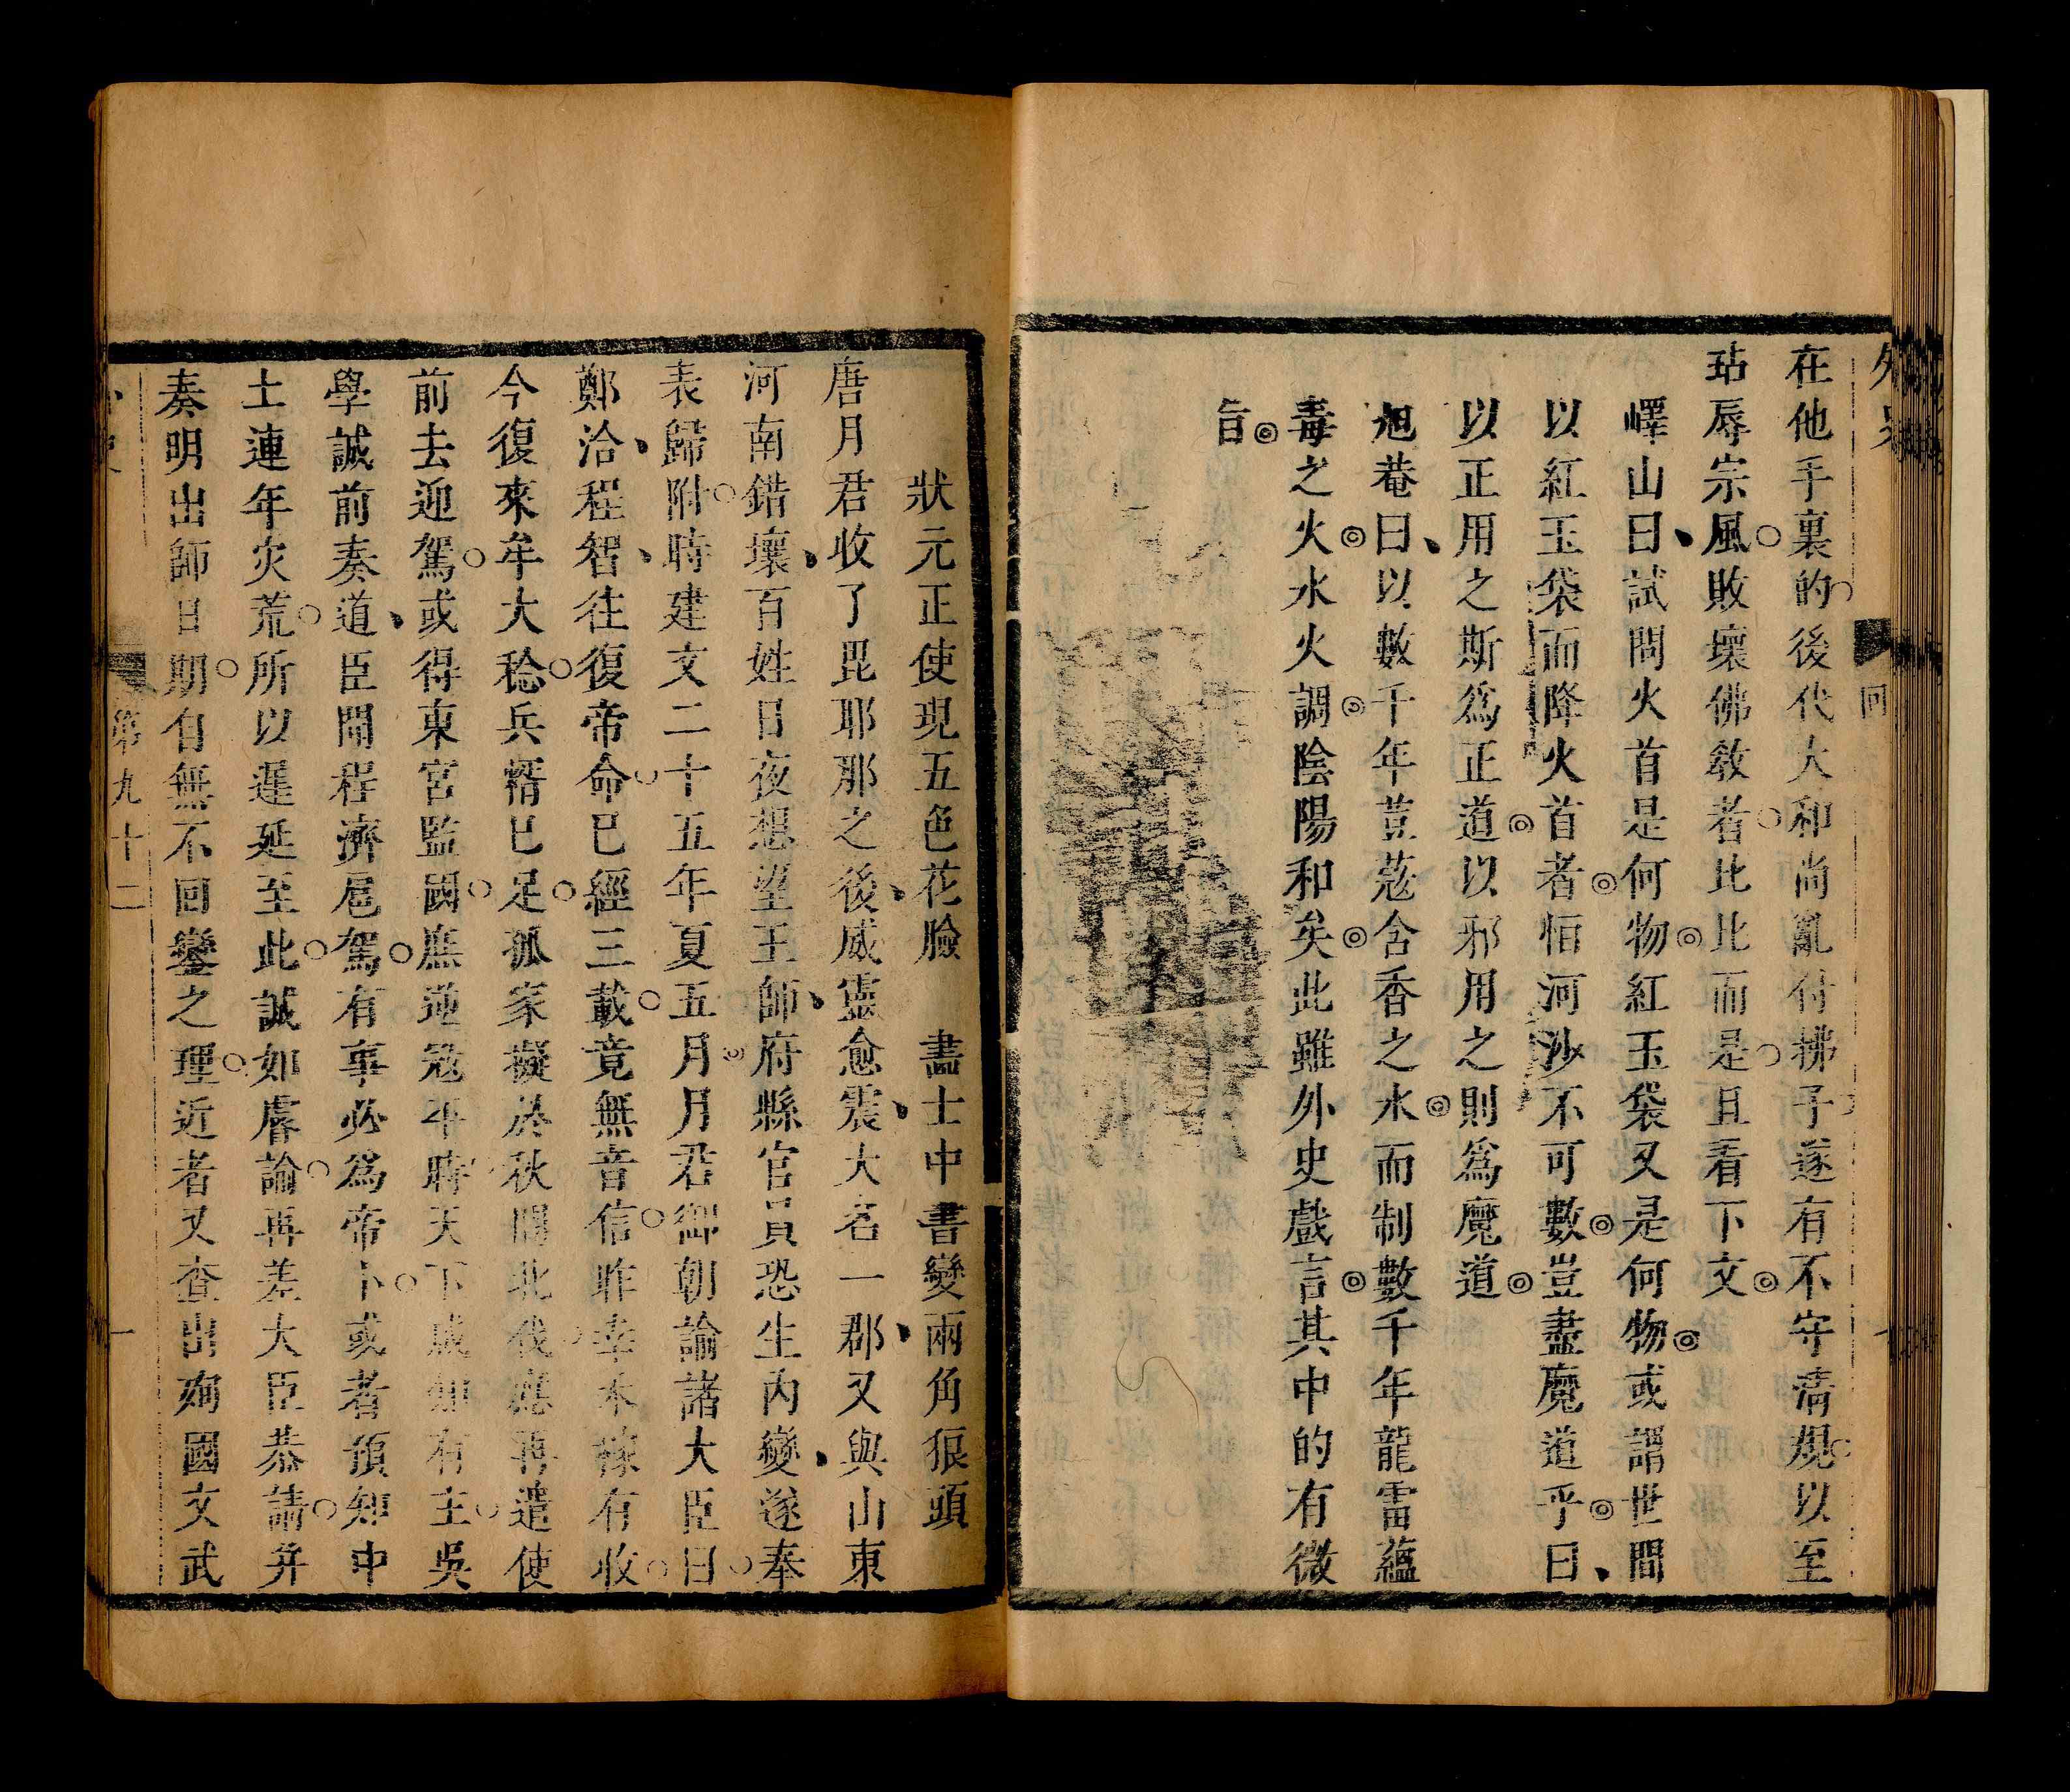 外史
回
在他手裏的後代大和尚亂付拂子遂有不守淸規以至
玷辱宗風敗壞佛教者比比而是且看下文
嶧山曰試問火首是何物紅玉袋又是何物或謂世間
以紅玉袋而降火首者恒河沙不可數豈盡魔道乎曰
以正用之斯爲正道以邪用之則爲魔道
旭菴曰以數千年荳蔻含香之水而制數千年龍雷蘊
毒之火水火調陰陽和矣此雖外史戲言其中的有微
旨
狀元正使現五色花臉　畵士中書變兩角狼頭
唐月君收了毘耶那之後威靈愈震大名一郡又與山東
河南錯壤百姓日夜想望王師府縣官員恐生內變遂奉
表歸附時建文二十五年夏五月月君御朝諭諸大臣曰
鄭洽程智往復帝命已經三載竟無音信昨幸禾稼有收
今復來牟大稔兵精已足孤家擬於秋間北伐應再遣使
前去迎駕或得東宮監國庶逆宼平時天下咸知有主吳
學誠前奏道臣聞程濟扈駕有事必爲帝卜或者預知中
土連年灾荒所以遲延至此誠如睿諭再差大臣恭請并
奏明出師日期自無不回鑾之理近者又查出殉國文武
第九十二
一